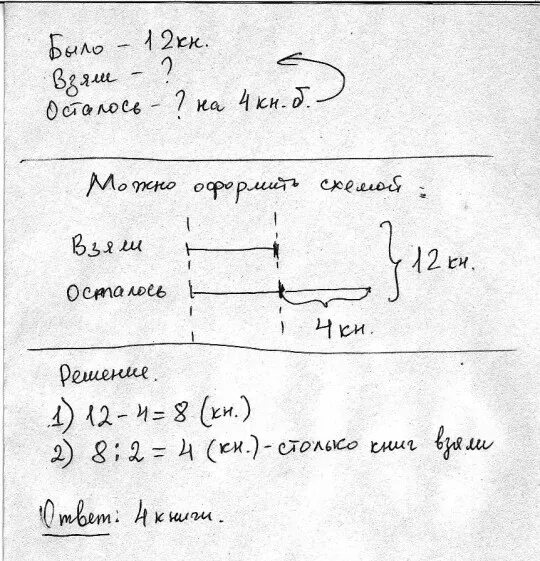 Было - 12кн.
Взяли - ?
Осталось - ? на 4 кн. б.
Можно оформить схемой:
Взяли
Осталось
12 кн.
4 кн.
Решение.
1) 12 - 4 = 8 (кн.)
2) 8 : 2 = 4 (кн.) - столько книг взяли
Ответ: 4 книги.